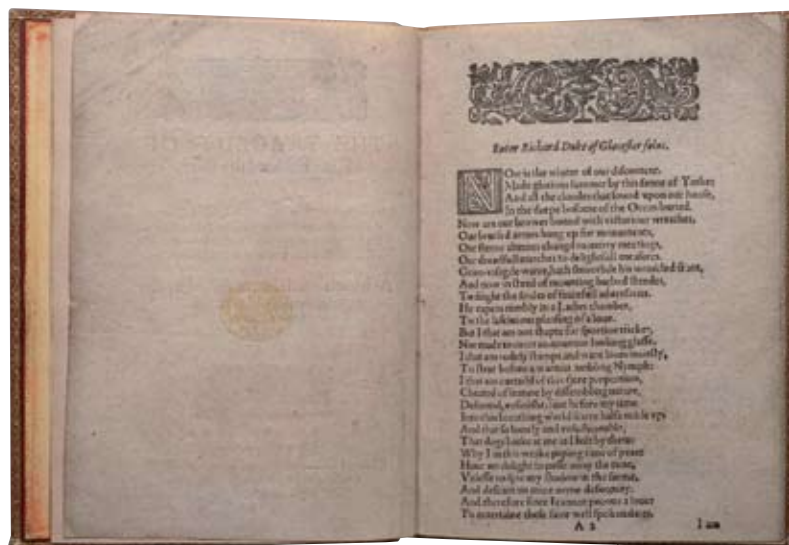 Enter Richard Duke of Glocester solus.
Now is the winter of our discontent,
Made glorious summer by this sonne of Yorke:
And all the cloudes that lowrd vpon our house,
In the deepe bosome of the Ocean buried.
Now are our browes bound with victorious wreathes,
Our bruised armes hung vp for monuments,
Our sterne alarmes changd to merry meetings,
Our dreadfull marches to delightfull measures.
Grim-visagde warre, hath smoothde his wrinkled front,
And now in steed of mounting barbed steedes,
To fright the soules of fearefull aduersaries.
He capers nimbly in a Ladies chamber,
To the lasciuious pleasing of a loue.
But I that am not shapte for sportiue trickes,
Nor made to court an amorous looking glasse,
I that am rudely stampt and want loues maiesty,
To strut before a wanton ambling Nymph:
I that am curtaild of this faire proportion,
Cheated of feature by dissembling nature,
Deformd, vnfinisht, sent before my time
Into this breathing world scarce halfe made vp,
And that so lamely and vnfashionable,
That dogs barke at me as I halt by them:
Why I in this weake piping time of peace
Haue no delight to passe away the time,
Vnlesse to spie my shadow in the sunne,
And descant on mine owne deformity:
And therefore since I cannot prooue a louer
To entertaine these faire well spoken daies,
A 2 I am